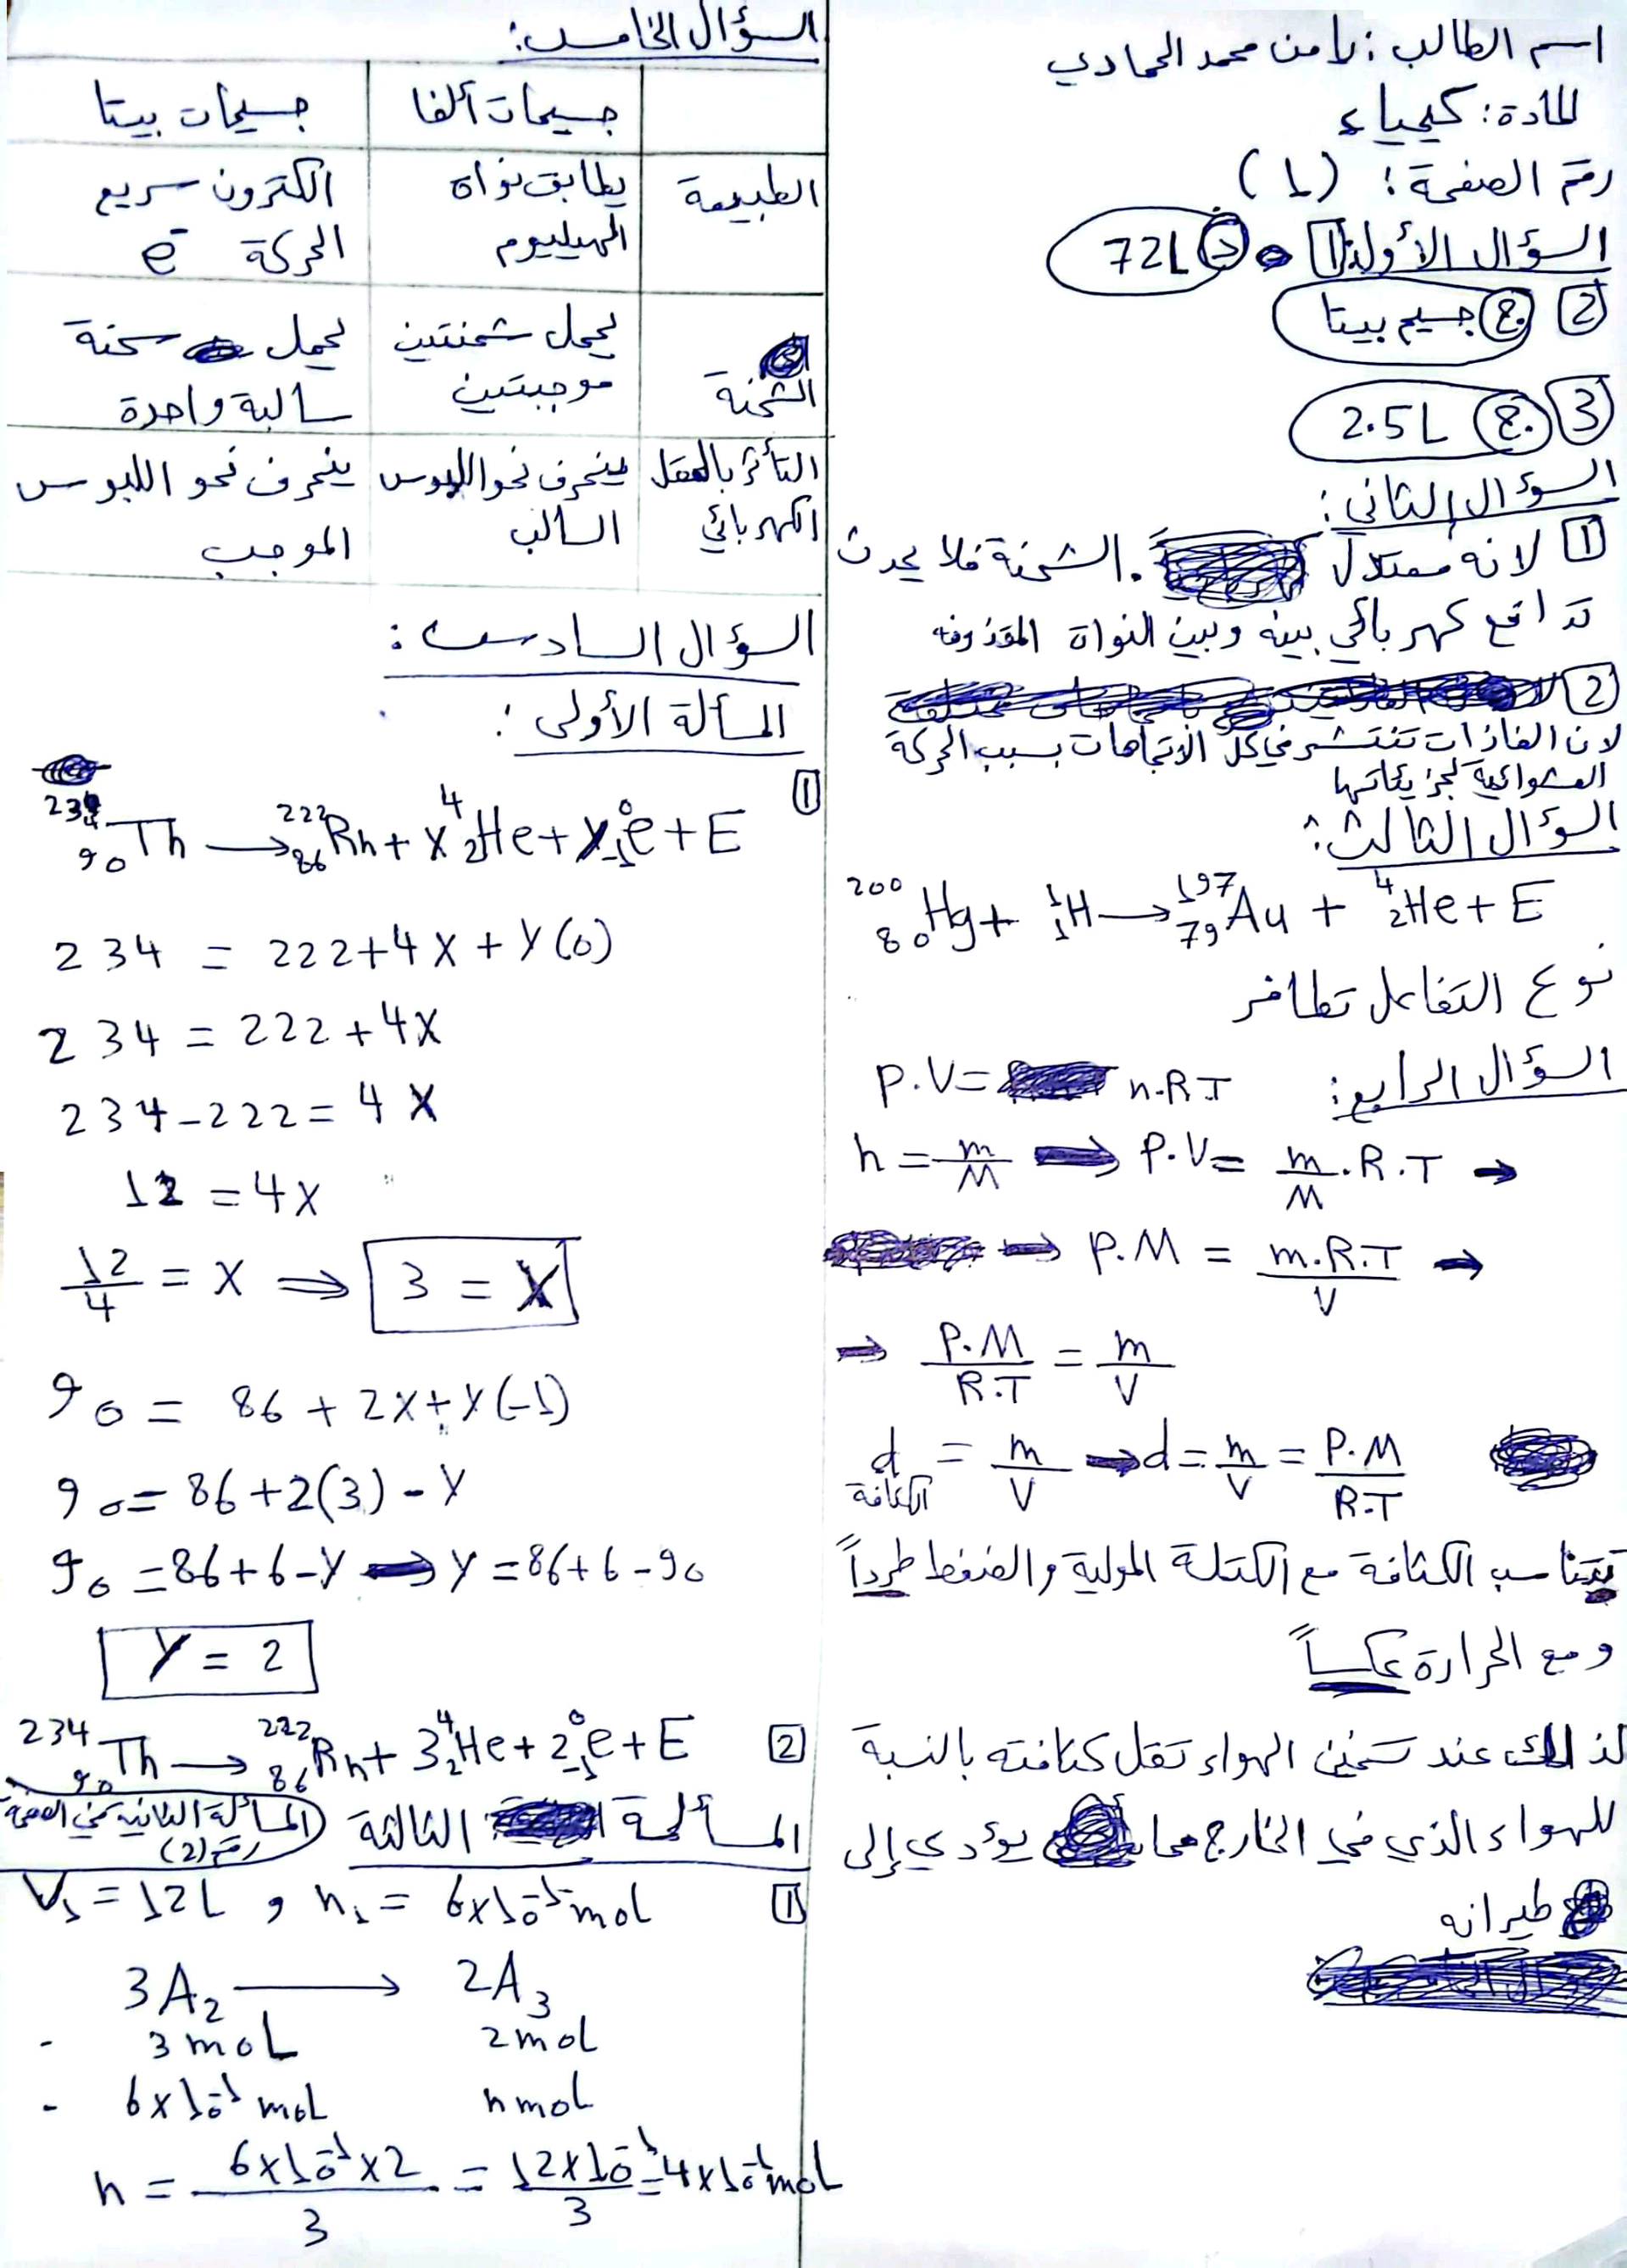 اسم الطالب: يامن محمد الحمادي
المادة: كيمياء
رقم الصفحة: (1)
السؤال الأول: 1 د 72L
2 ج. جسيم بيتا
3 ج. 2.5L
السؤال الثاني:
1 لانه معتدل الشحنة فلا يحدث
تدافع كهربائي بينه وبين النواة المقذوفة
2
لان الغازات تنتشر في كل الاتجاهات بسبب الحركة
العشوائية لجزيئاتها
السؤال الثالث:
²⁰⁰₈₀Hg + ¹₁H → ¹⁹⁷₇₉Au + ⁴₂He + E
نوع التفاعل تطافر
السؤال الرابع: P.V = n.R.T
n = m/M ⇒ P.V = m/M .R.T →
⇒ P.M = m.R.T/V →
⇒ P.M/R.T = m/V
d = m/V → d = m/V = P.M/R.T
الكثافة
تتناسب الكثافة مع الكتلة المولية والضغط طرداً
ومع الحرارة عكساً
لذلك عند تسخين الهواء تقل كثافته بالنسبة
للهواء الذي في الخارج مما يؤدي إلى
طيرانه
السؤال الخامس:
جسيمات ألفا جسيمات بيتا
الطبيعة يطابق نواة الكترون سريع
الهيليوم الحركة e⁻
الشحنة يحمل شحنتين يحمل سحنة
موجبتين سالبة واحدة
التأثر بالحقل ينحرف نحو اللبوس ينحرف نحو اللبوس
الكهربائي السالب الموجب
السؤال السادس:
المسألة الأولى:
1
²³⁴₉₀Th → ²²²₈₆Rn + X ⁴₂He + Y ⁰₋₁e + E
234 = 222+4X + Y(0)
234 = 222+4X
234-222 = 4X
12 = 4X
12/4 = X ⇒ 3 = X
90 = 86 + 2X + Y(-1)
90 = 86+2(3) - Y
90 = 86+6-Y ⇒ Y = 86+6-90
Y = 2
2 ²³⁴₉₀Th → ²²²₈₆Rn + 3 ⁴₂He + 2 ⁰₋₁e + E
المسألة الثالثة
المسألة الثانية في الصفحة
رقم (2)
1 V₁ = 12L , n₁ = 6×10⁻¹ mol
3A₂ → 2A₃
- 3 mol 2 mol
- 6×10⁻¹ mol n mol
n = 6×10⁻¹×2/3 = 12×10⁻¹/3 = 4×10⁻¹ mol